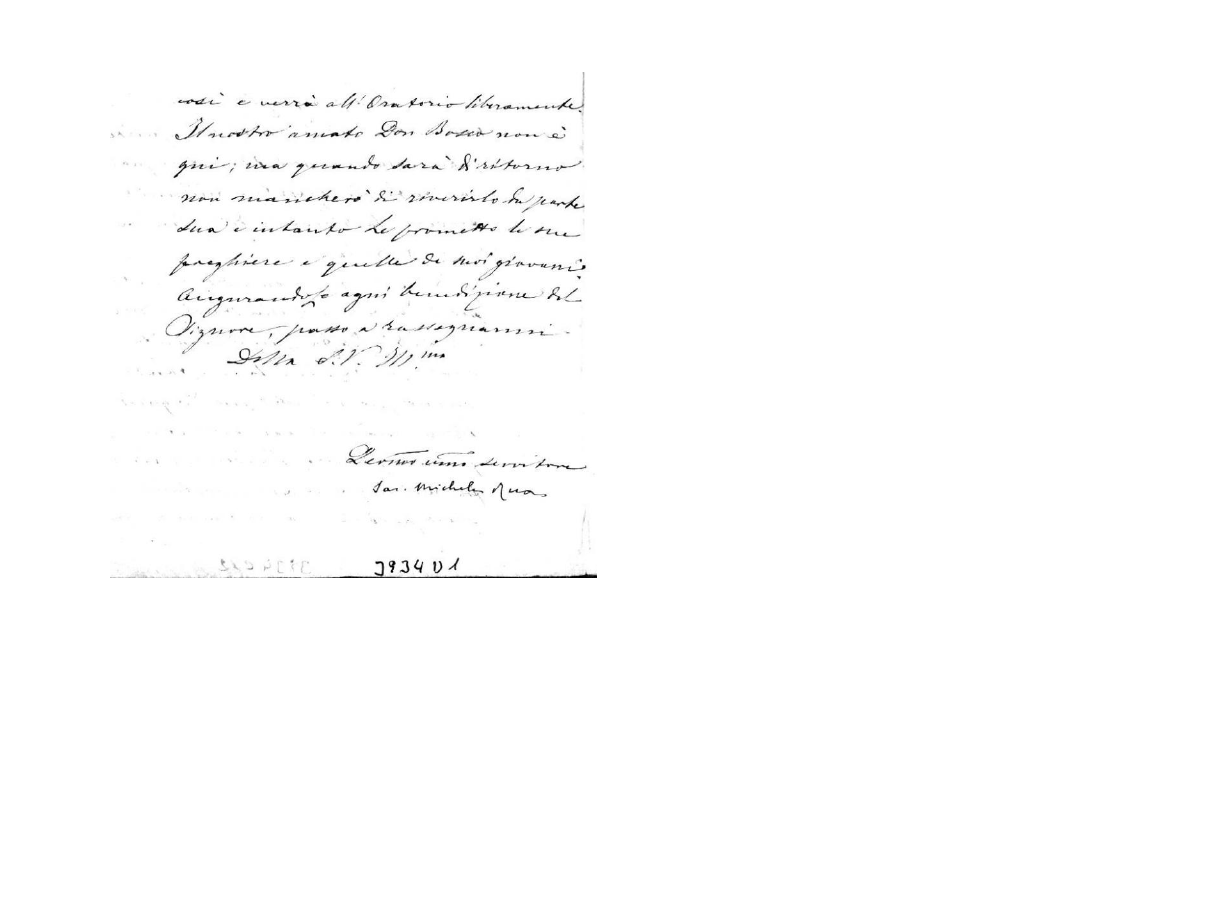 così e verrà all'Oratorio liberamente.
Il nostro amato Don Bosco non è
qui; ma quando sarà di ritorno
non mancherò di riverirlo da parte
sua e intanto Le prometto le sue
preghiere e quelle de' suoi giovani.
Augurandole ogni benedizione del
Signore, passo a rassegnarmi
Della S.V. Ill.ma
Devmo servitore
Sac. Michele Rua
3934 D 1